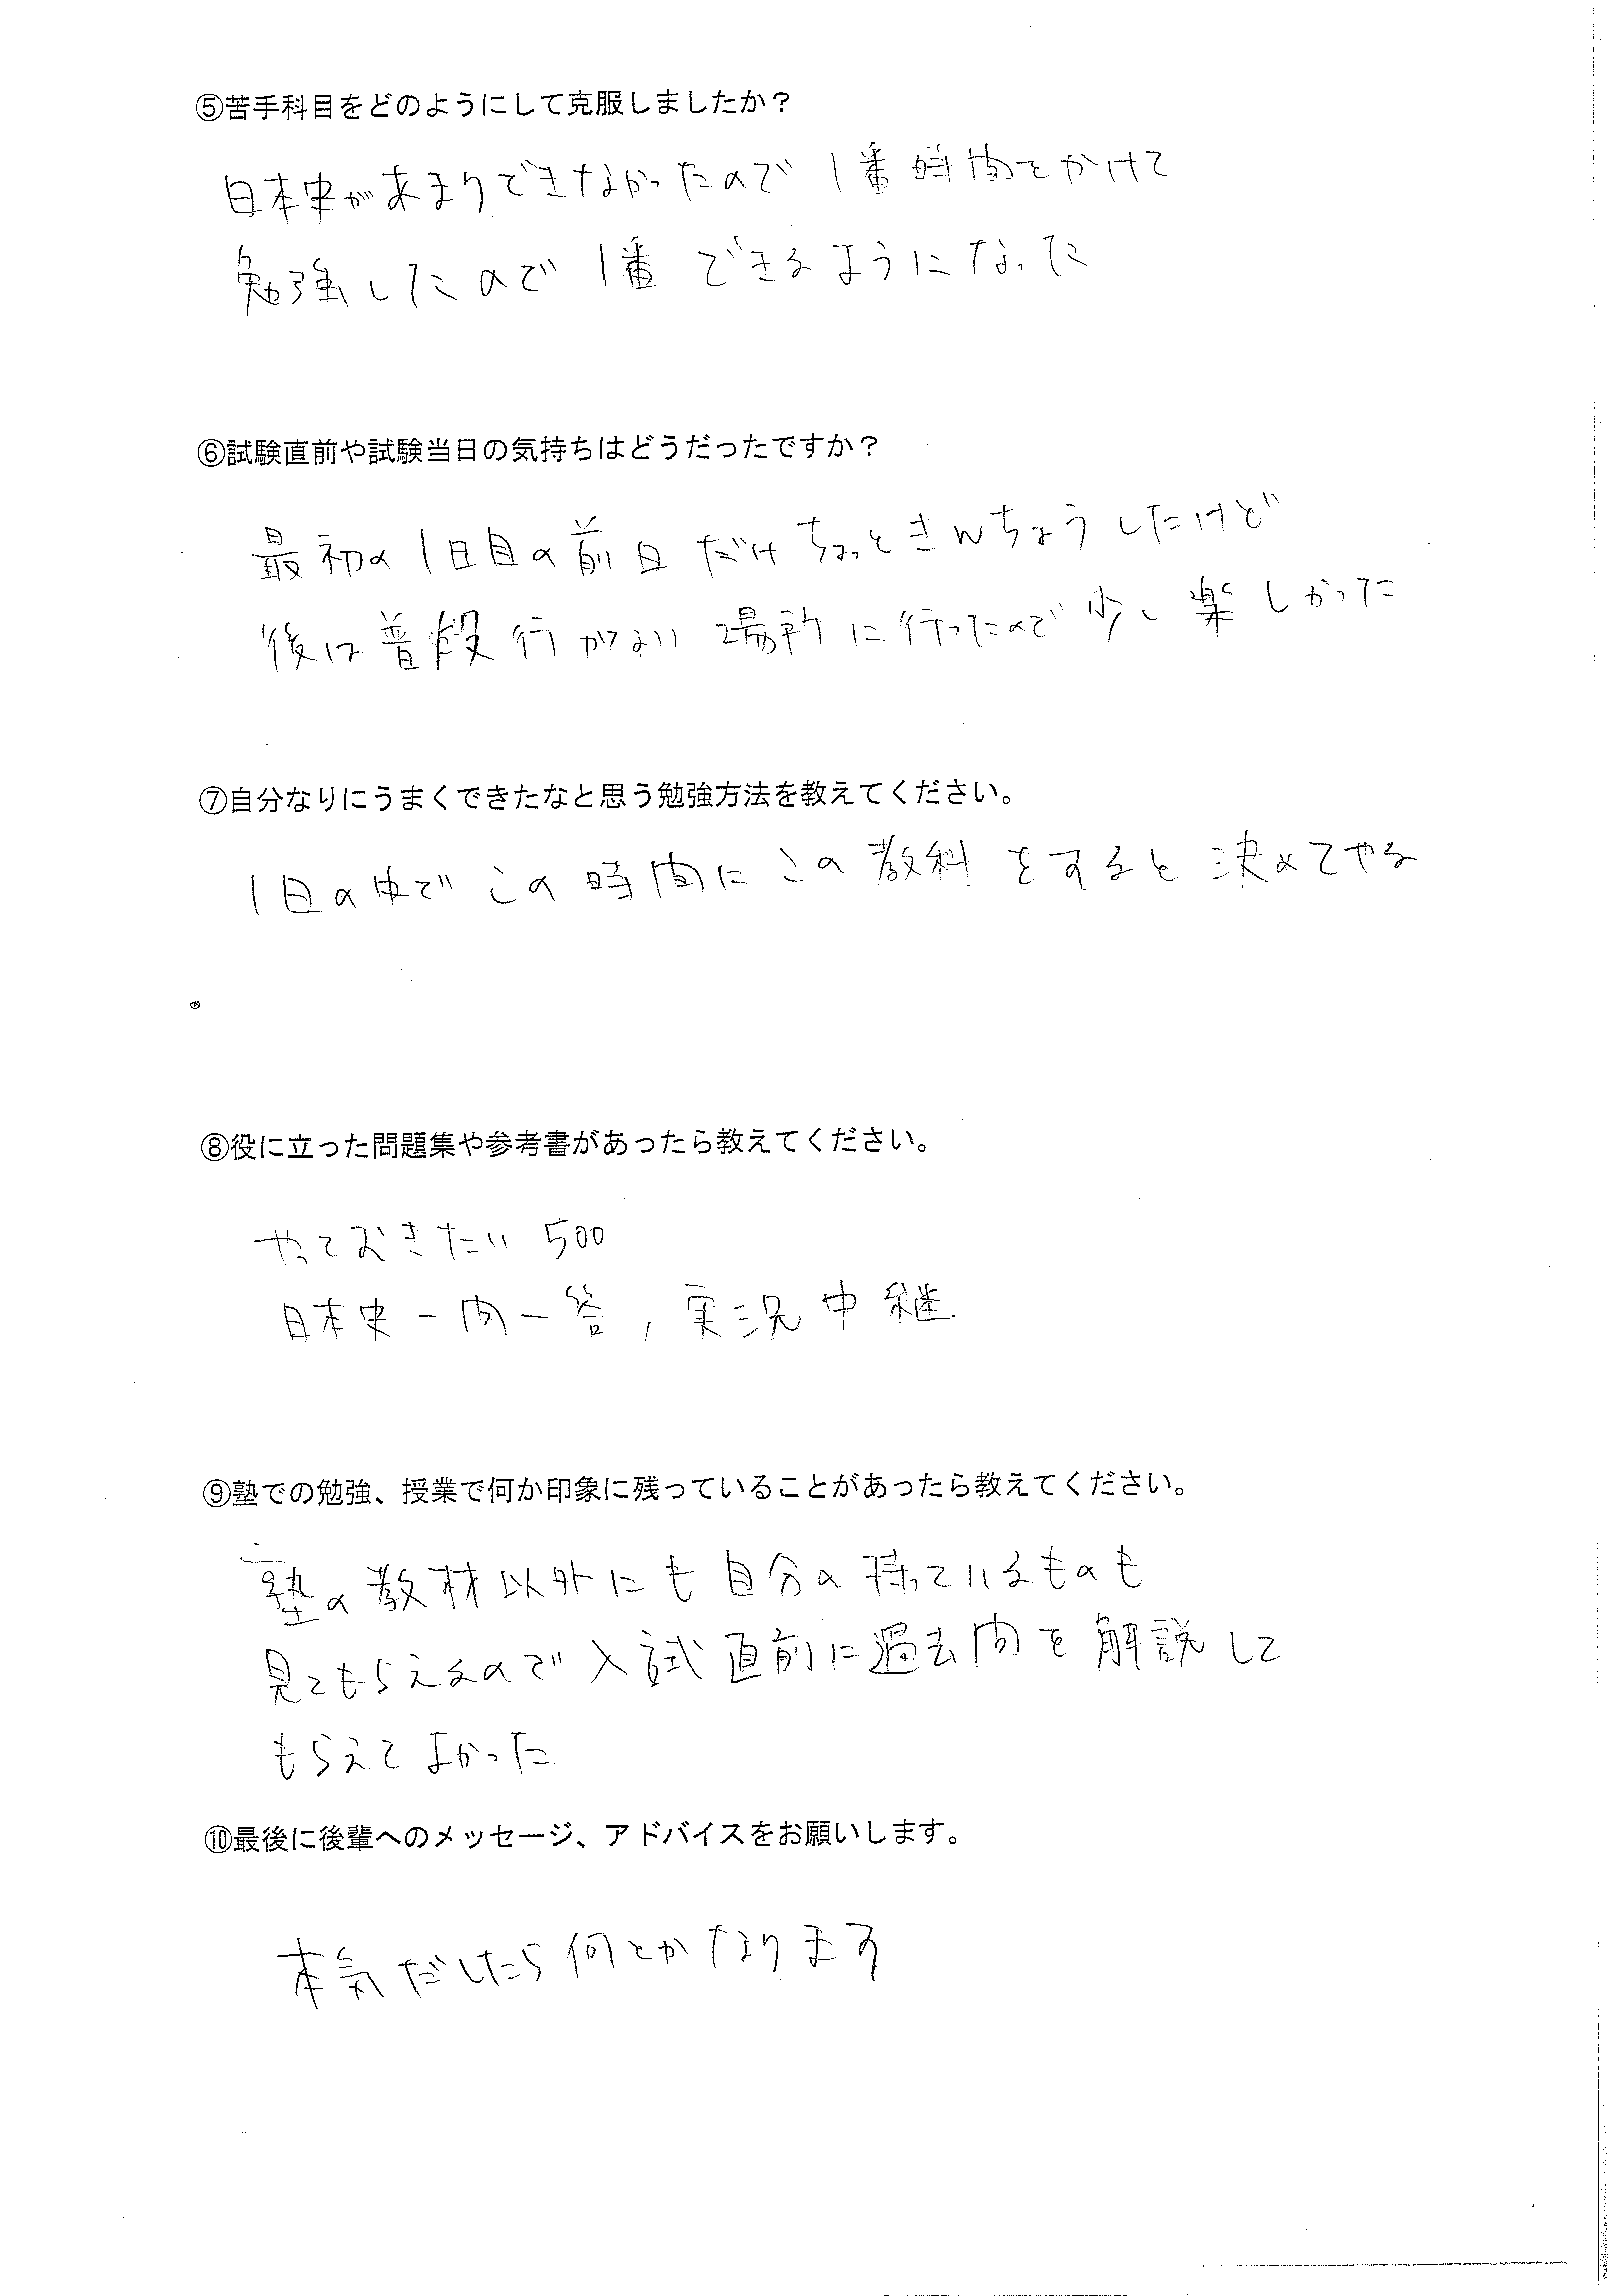 ⑤苦手科目をどのようにして克服しましたか？
日本史があまりできなかったので1番時間をかけて
勉強したので1番できるようになった
⑥試験直前や試験当日の気持ちはどうだったですか？
最初の1日目の前日だけちょっときんちょうしたけど
後は普段行かない場所に行ったので少し楽しかった
⑦自分なりにうまくできたなと思う勉強方法を教えてください。
1日の中でこの時間にこの教科をすると決めてやる
⑧役に立った問題集や参考書があったら教えてください。
やっておきたい500
日本史一問一答，実況中継
⑨塾での勉強、授業で何か印象に残っていることがあったら教えてください。
塾の教材以外にも自分の持っているものも
見てもらえるので入試直前に過去問を解説して
もらえてよかった
⑩最後に後輩へのメッセージ、アドバイスをお願いします。
本気だしたら何とかなります